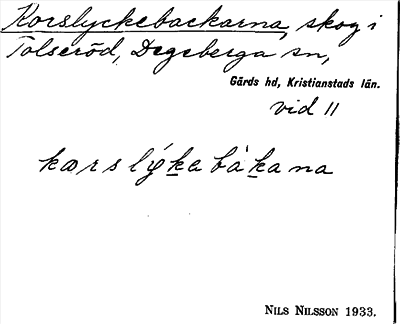 Korslyckebackarna, skog i
Tolseröd, Degeberga sn,
Gärds hd, Kristianstads län.
vid 11
kørslýkebàkana
NILS NILSSON 1933.